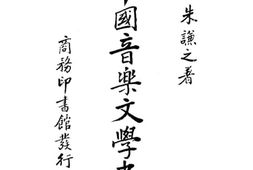 朱謙之著
國音樂文學
商務印書館發行